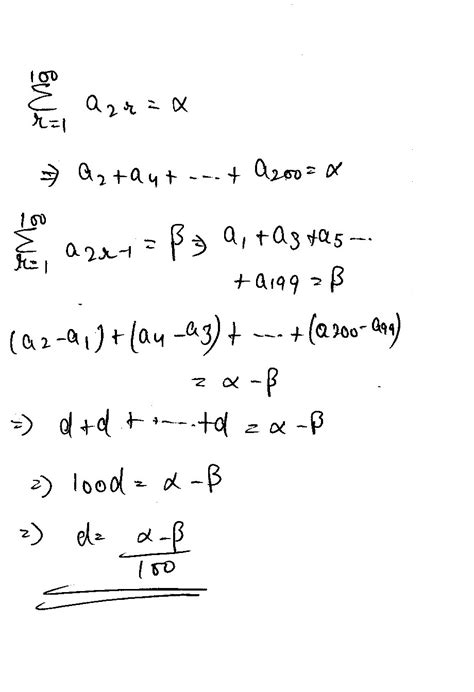 100
∑ a₂ᵣ = α
r=1
⇒ a₂ + a₄ + ---- + a₂₀₀ = α
100
∑ a₂ᵣ₋₁ = β ⇒ a₁ + a₃ + a₅ ---
r=1
+ a₁₉₉ = β
(a₂ - a₁) + (a₄ - a₃) + ---- + (a₂₀₀ - a₉₉)
= α - β
⇒ d + d + ---- + d = α - β
⇒ 100d = α - β
⇒ d = α - β
100